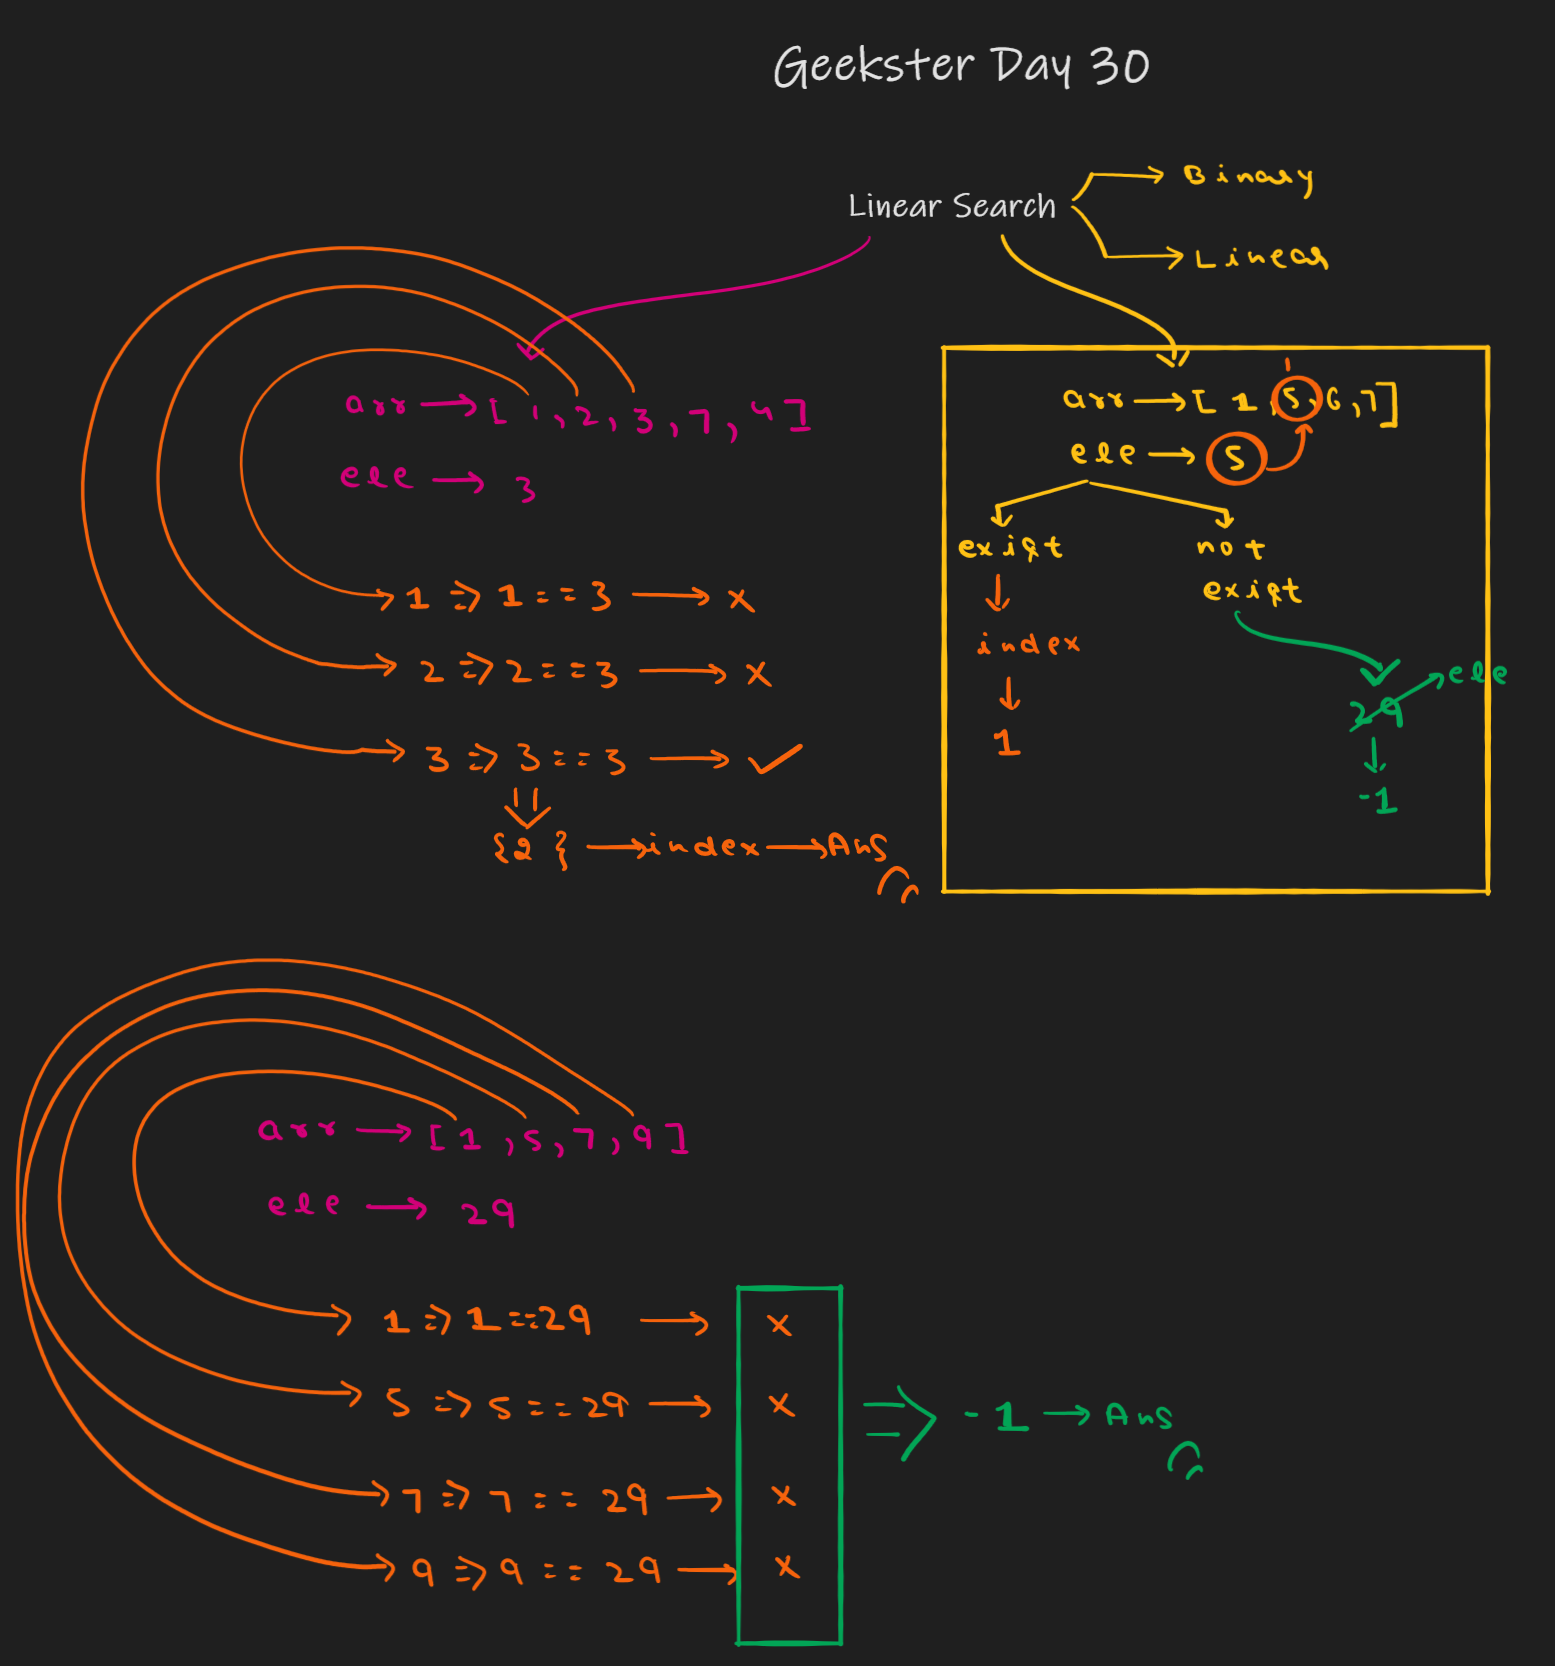 Geekster Day 30
Linear Search
→ Binary
→ Linear
arr → [ 1, 2, 3, 7, 4 ]
ele → 3
1 => 1 == 3 → x
2 => 2 == 3 → x
3 => 3 == 3 → ✓
{2} → index → Ans
arr → [ 1, 5, 6, 7 ]
1
ele → 5
exist
not
exist
index
1
29 → ele
-1
arr → [ 1, 5, 7, 9 ]
ele → 29
1 => 1 == 29 → x
5 => 5 == 29 → x
7 => 7 == 29 → x
9 => 9 == 29 → x
=> -1 → Ans